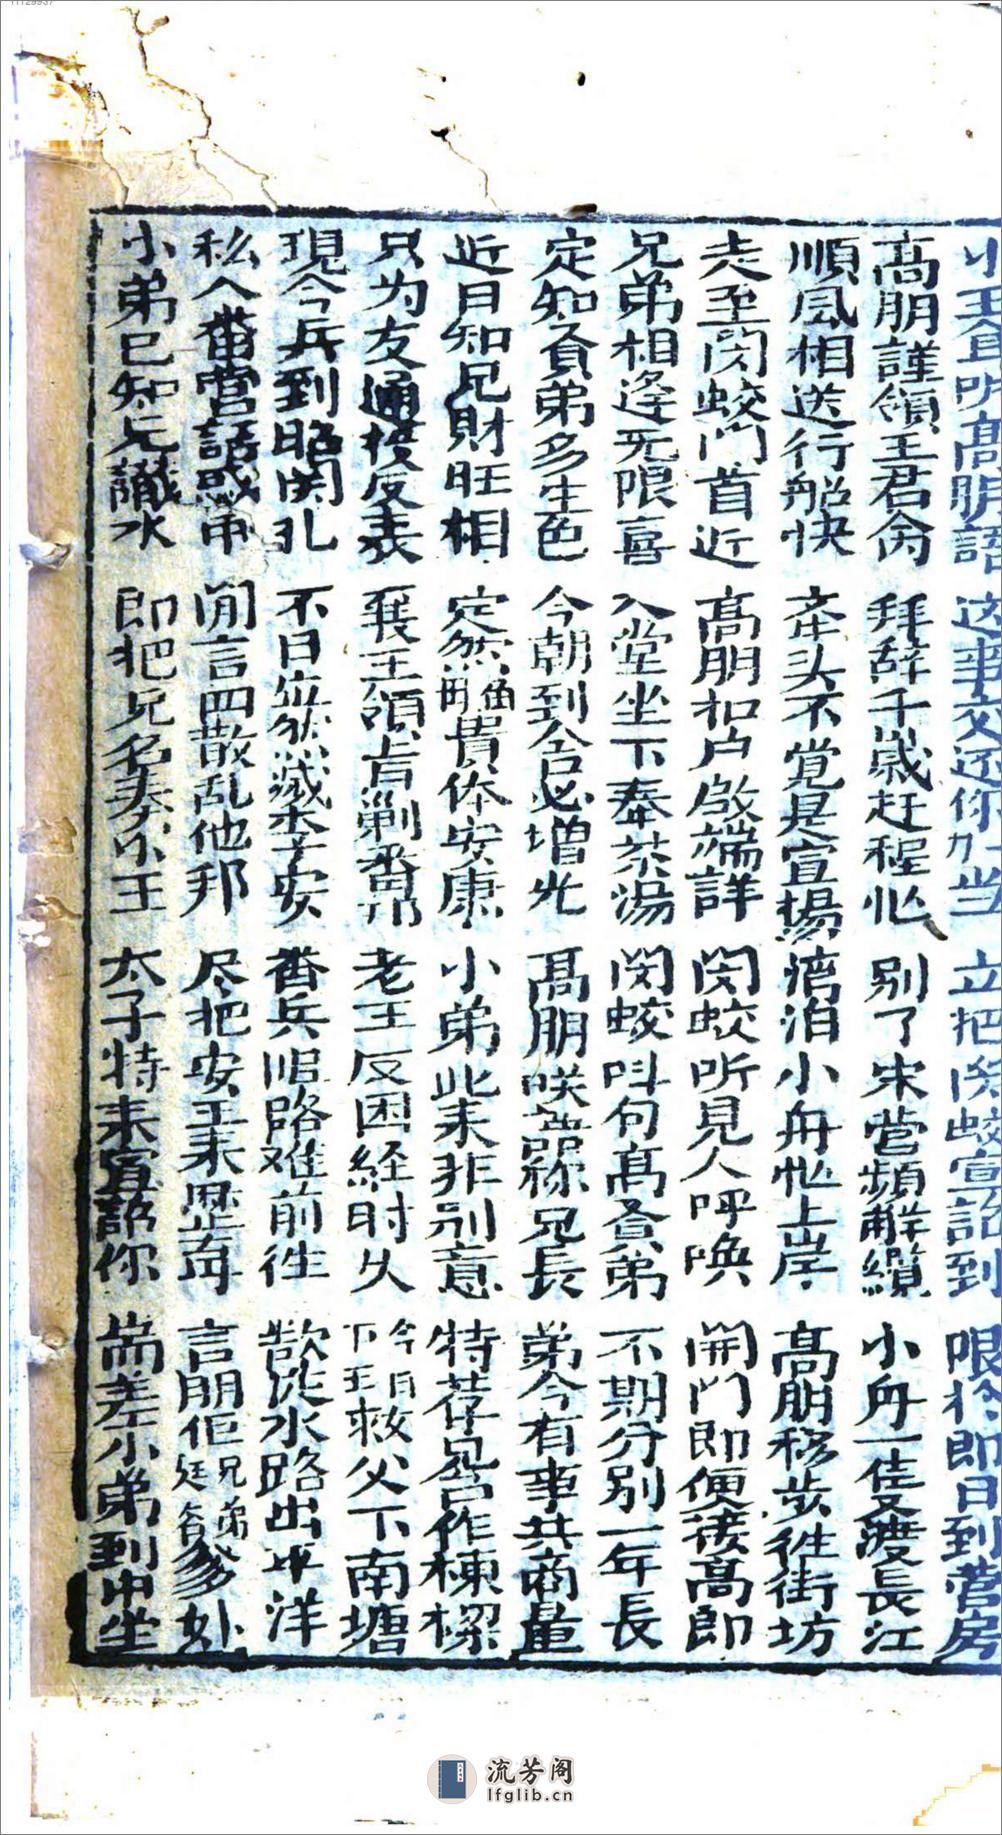 11129937
小王聽听高朋語 这事交还你 立把闵蛟宣詔到 限於即日到营房
高朋謹領王君 拜辞千歲赶程忙 别了宋营頻觧纜 小舟一隹又渡長江
順風相送行船快 不覚是宣場 湾泊小舟忙上岸 高朋移步徃街坊
走至闵蛟门首近 高朋扣户啟端詳 闵蛟听見人呼喚 開门即便接高郎
兄弟相逢无限喜 入堂坐下奉茶湯 闵蛟呌句高賢弟 不期分别一年長
定知多生色 今朝到合必增光 高朋咲荅称兄長 弟今有事共商量
近日知兄財旺相 定然貴体安康 小弟此来非别意 特荐兄台作棟樑
只为友通投反表 襄王領旨剿番邦 老王反困経时久 今日下王救父下南塘
現今兵到昭関扎 不日安 番兵阻路难前徃 歓从水路出平洋
私入番营語惑 閒言四散乱他邦 尽把安王来歷 言朋佢兄弟
小弟已知兄識水 即把兄名奏小王 太子特来宣詔你 耑差小弟到中坐
流芳阁
lfglib.cn